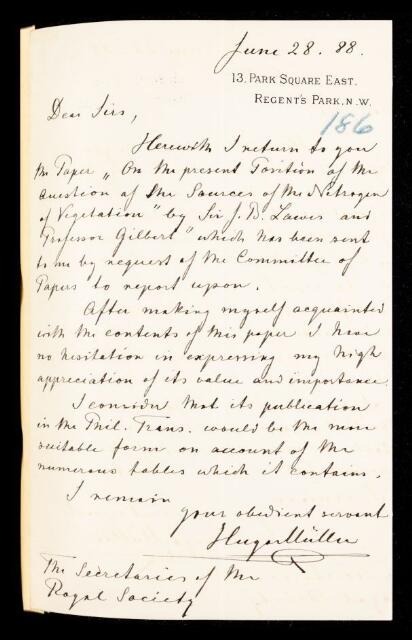 June 28. 88.
13. PARK SQUARE EAST.
REGENT'S PARK. N.W.
186
Dear Sirs,
Herewith I return to you
the Paper „On the present Position of the
question of the Sources of the Nitrogen
of Vegetation" by Sir J. B. Lawes and
Professor Gilbert" which has been sent
to me by request of the Committee of
Papers to report upon.
After making myself acquainted
with the contents of this paper I have
no hesitation in expressing my high
appreciation of its value and importance.
I consider that its publication
in the Phil. Trans. would be the more
suitable form on account of the
numerous tables which it contains.
I remain
your obedient servant
Hugo Müller
The Secretaries of the
Royal Society